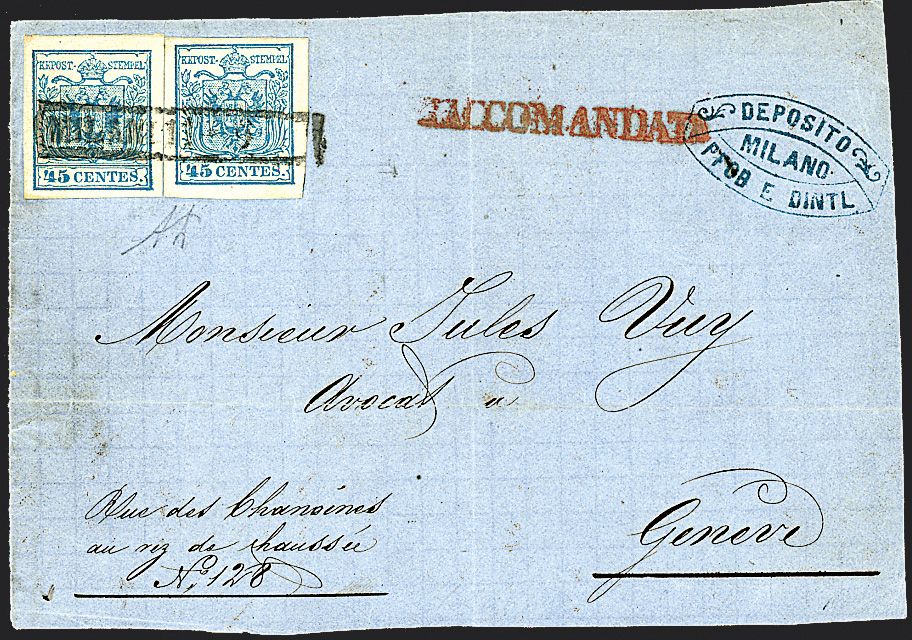 KKPOST-STEMPEL KKPOST-STEMPEL
45 CENTES. 45 CENTES.
RACCOMANDATA
DEPOSITO
MILANO
PTOB E DINTL
Monsieur Jules Vuy
Avocat a
Genève
Rue des Chanoines
au rez de chaussée
No. 128